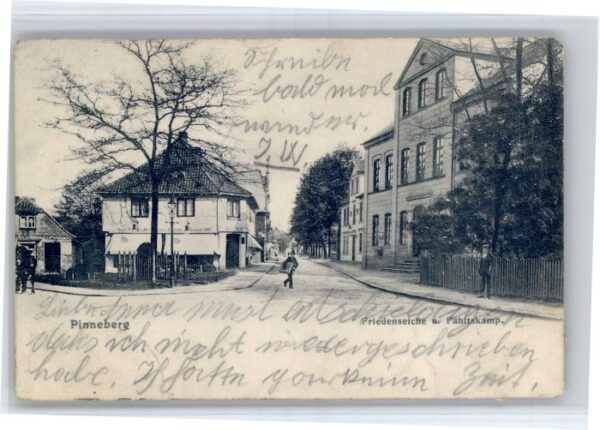 Schreibe
bald mal
wieder.
J. W.
Pinneberg
Friedenseiche u. Fahltskamp.
mußt entschuldigen
daß ich nicht wiedergeschrieben
habe. Ich hatte gar keine Zeit.